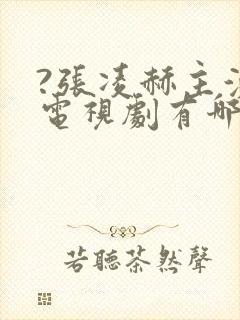 ?張凌赫主演
電視劇有哪
若聽茶然聲